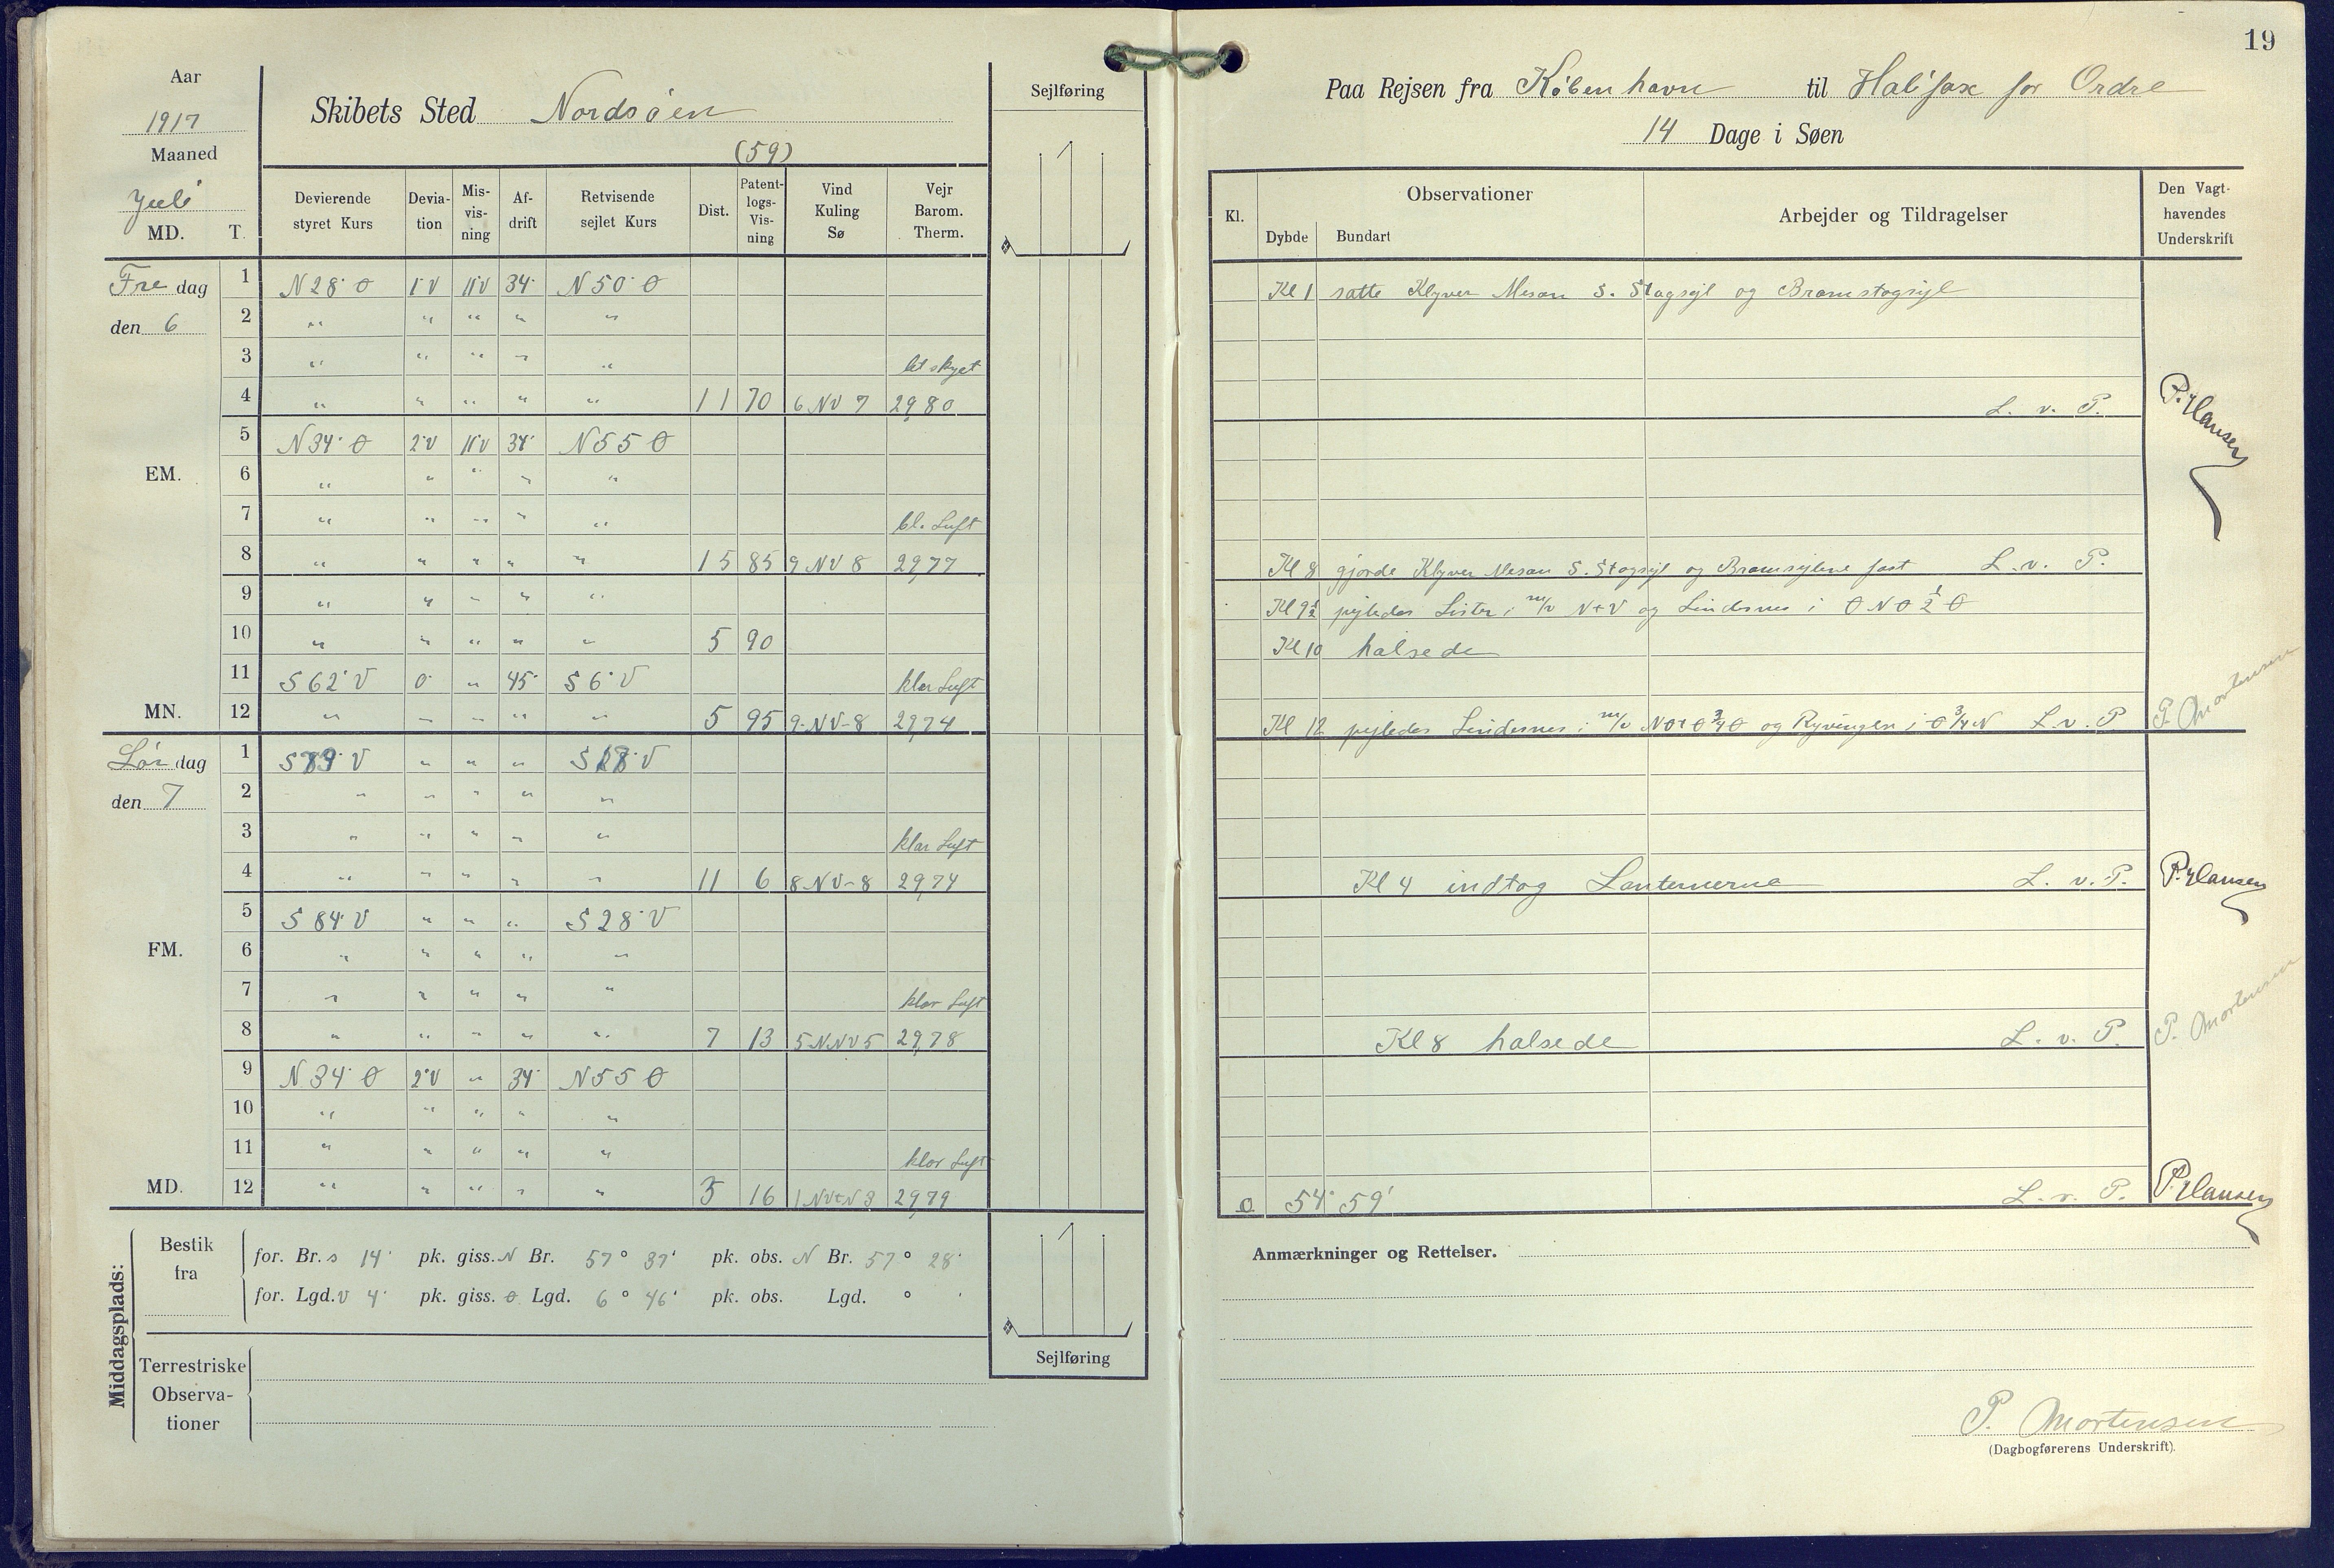 Aar
1917
Maaned
Juli
MD. T.
Skibets Sted Nordsøen
(59)
Devierende styret Kurs
Devia-tion
Mis-vis-ning
Af-drift
Retvisende sejlet Kurs
Dist.
Patent-logs-Vis-ning
Vind Kuling Sø
Vejr Barom. Therm.
Sejlføring
Fredag den 6
1 N 28° Ø 1°V 11°V 34° N 50° Ø
2 " " " " "
3 " " " " " let skyet
4 " " " " " 11 70 6 NV 7 29,80
5 N 34° Ø 2°V 11°V 34° N 55 Ø
EM.
6 " " " " "
7 " " " " " bl. Luft
8 " " " " " 15 85 9 NV 8 29,77
9 " " " " "
10 " " " " " 5 90
11 S 62° V 0° " 45° S 6° V klar Luft
MN. 12 " " " " " 5 95 9-NV-8 29,74
Lørdag den 7
1 S 79° V " " " S 18° V
2 " " " " "
3 " " " " " klar Luft
4 " " " " " 11 6 8 NV-8 29,74
5 S 84° V " " " S 28° V
FM.
6 " " " " "
7 " " " " " klar Luft
8 " " " " " 7 13 5 NNV 5 29,78
9 N 34° Ø 2°V " 34° N 55 Ø
10 " " " " "
11 " " " " " klar Luft
MD. 12 " " " " " 3 16 1 NV+N 3 29,79
Middagsplads:
Bestik fra
for. Br. S 14' pk. giss. N Br. 57° 37' pk. obs. N Br. 57° 28'
for. Lgd. V 4' pk. giss. Ø Lgd. 6° 46' pk. obs. Lgd. ° '
Terrestriske Observa-tioner
Sejlføring
19
Paa Rejsen fra København til Halifax for Ordre
14 Dage i Søen
Kl.
Observationer
Dybde Bundart
Arbejder og Tildragelser
Den Vagt-havendes Underskrift
Kl 1 satte Klyver Mesan S. Stagsejl og Bramstagsejl
L. v. P. P. Hansen
Kl 8 gjorde Klyver Mesan S. Stagsejl og Bramsejlene fast L. v. P.
Kl 9½ pejledes Lister i m/v N+V og Lindesnes i ØNØ ½ Ø
Kl 10 halsede
Kl 12 pejledes Lindesnes i m/v NØ+Ø ¾ Ø og Ryvingen i Ø ¾ N L. v. P P. Mortensen
Kl 4 indtog Lanternerne L. v. P. P. Hansen
Kl 8 halsede L. v. P. P. Mortensen
54° 59' L. v. P. P. Hansen
Anmærkninger og Rettelser.
P. Mortensen
(Dagbogførerens Underskrift).